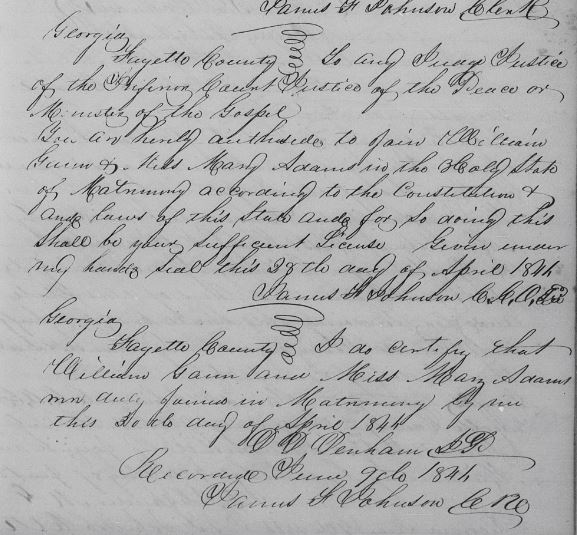 James F Johnson Clerk
Georgia
Fayette County To any Judge Justice
of the Inferior Court Justice of the Peace or
Minister of the Gospel
You are hereby authorised to join William
Gunn & Miss Mary Adams in the Holy State
of Matrimony according to the Constitution &
and laws of this State and for so doing this
Shall be your Sufficient License Given under
my hand & Seal this 28th day of April 1844
James F Johnson C.C.O.
Georgia
Fayette County I do certify that
William Gann and Miss Mary Adams
were duly joined in Matrimony by me
this 30th day of April 1844
Denham J.P.
Recorded June 9th 1844
James F Johnson